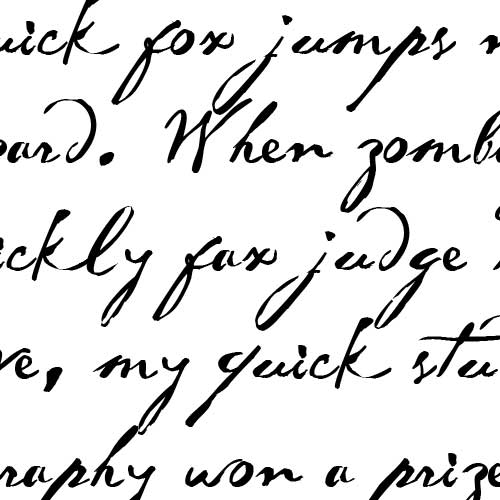 uick fox jumps
oard. When zomb
ickly fax judge
ve, my quick stu
raphy won a prize